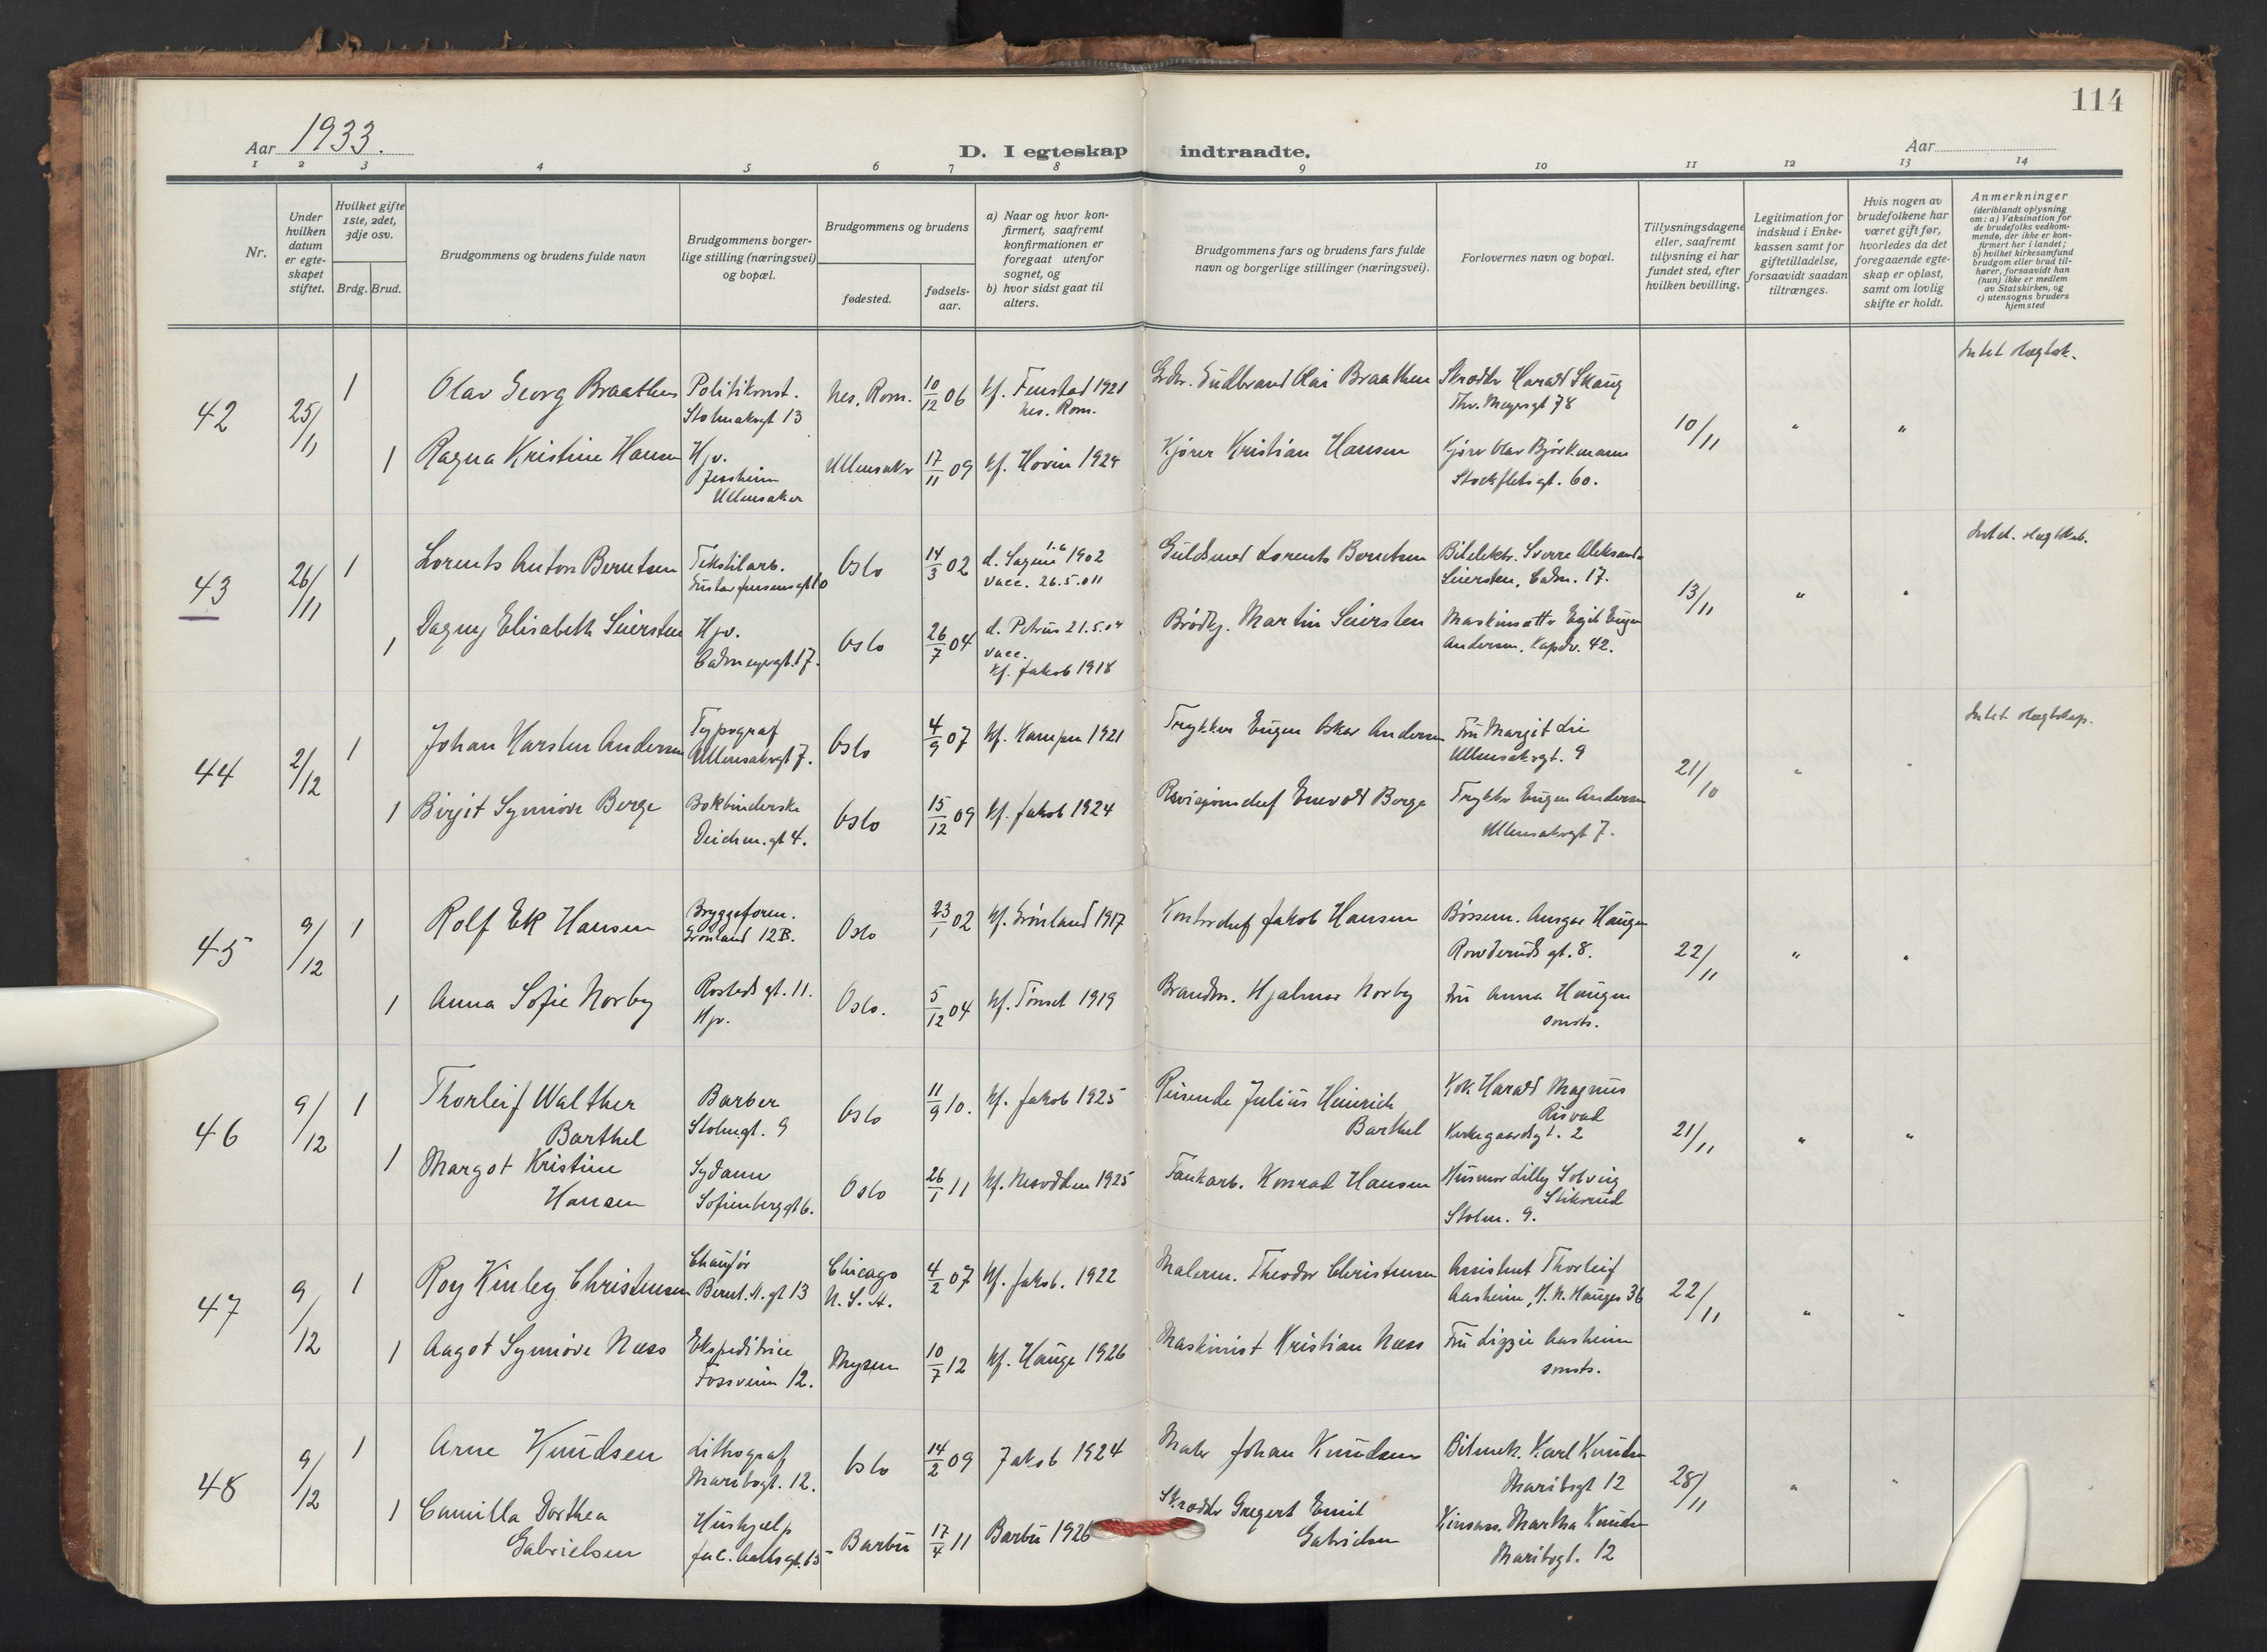 114
Aar 1933.
D. I egteskap indtraadte.
Aar
1 2 3 4 5 6 7 8 9 10 11 12 13 14
Nr.
Under hvilken datum er egteskapet stiftet.
Hvilket gifte 1ste, 2det, 3dje osv.
Brdg. Brud.
Brudgommens og brudens fulde navn
Brudgommens borgerlige stilling (næringsvei) og bopæl.
Brudgommens og brudens
fødested.
fødselsaar.
a) Naar og hvor konfirmert, saafremt konfirmationen er foregaat utenfor sognet, og
b) hvor sidst gaat til alters.
Brudgommens fars og brudens fars fulde navn og borgerlige stillinger (næringsvei).
Forlovernes navn og bopæl.
Tillysningsdagene eller, saafremt tillysning ei har fundet sted, efter hvilken bevilling.
Legitimation for indskud i Enkekassen samt for giftetilladelse, forsaavidt saadan tiltrænges.
Hvis nogen av brudefolkene har været gift før, hvorledes da det foregaaende egteskap er opløst, samt om lovlig skifte er holdt.
Anmerkninger
(deriblandt oplysning om: a) Vaksination for de brudefolks vedkommende, der ikke er konfirmert her i landet; b) hvilket kirkesamfund brudgom eller brud tilhører, forsaavidt han (hun) ikke er medlem av Statskirken, og c) utensogns bruders hjemsted
42 25/11
1 Olav Georg Braathen Politikonst. Nes, Rom. 10/12 06 kf. Fenstad 1921 Gudbrand Olai Braathen Harald Skaug Intet slegtsk.
13 nes. Rom. Thv. Meyersgt 78
10/11 " "
1 Ragna Kristine Hansen Hjv. Ullensaker 17/11 09 kf. Hovin 1924 Kjører Kristian Hansen Kjører Olav Bjørkmann
Jessheim Stockfletsgt. 60.
Ullensaker
43 26/11
1 Lorents Anton Berntsen Tekstilarb. Oslo 14/3 02 d. Sagene 1902 Guldsmed Lorents Berntsen Sverre Aleksander Intet slegtskab.
Gustav Jensens gt 10 vacc. 26.5.011 Seiersten, 17.
13/11 " "
1 Dagny Elisabeth Seiersten Hjv. Oslo 26/7 04 d. Petrus 21.5.04 Martin Seiersten Egil Eugen
17. vacc. Andersen. 42.
kf. Jakob 1918
44 2/12
1 Johan Karsten Andersen Typograf Oslo 4/9 07 kf. Kampen 1921 Trykker Eugen Oskar Andersen Fru Margit Lie Intet slegtskap.
Ullensakergt 7. Ullensakergt. 9
21/10 " "
1 Birgit Synnøve Berge Bokbinderske Oslo 15/12 09 kf. Jakob 1924 Revisjonschef Enevold Berge Trykker Eugen Andersen
Deichm. gt 4. Ullensakergt 7.
45 9/12
1 Rolf Ek Hansen Bryggeform. Oslo 23/1 02 kf. Grønland 1917 Kontorchef Jakob Hansen Ansgar Haugen
Grønland 12B. gt. 8.
22/11 " "
1 Anna Sofie Norby Rosteds gt. 11. Oslo. 5/12 04 kf. Tønset 1919 Brandm. Hjalmar Norby Fru Anna Haugen
Hjv. smsts.
46 9/12
1 Thorleif Walther Barber Oslo 11/9 10. kf. Jakob 1925 Reisende Julius Heinrich Kok Harald Magnus
Barthel Stolmgt. 9 Barthel Risvad
Kirkegaardsgt. 2
21/11 " "
1 Margot Kristine Sydame Oslo 26/1 11 kf. Nesodden 1925 Konrad Hansen Husmor Lilly Solveig
Hansen Sofienberggt 6. Stikerud
Stolm. 9.
47 9/12
1 Roy Kinley Christensen Chauffør Chicago 4/2 07 kf. Jakob. 1922 Malerm. Theodor Christensen Assistent Thorleif
Bernt. A. gt 13 U.S.A. Aasheim, H. N. Hauges 36
22/11 " "
1 Aagot Synnøve Næss Ekspeditrice Mysen 10/7 12 kf. Hauge 1926 Maskinist Kristian Næss Fru Lizzie Aasheim
Fossveien 12. smsts.
48 9/12
1 Arne Knudsen Lithograf Oslo 14/2 09 Jakob 1924 Maler Johan Knudsen Bilmek. Karl Knudsen
Maribogt. 12. Maribogt 12
28/11 " "
1 Camilla Dorthea Hushjælp Barbu 17/4 11 Barbu 1926 Skrædder Gregert Emil Martha Knudsen
Gabrielsen Jac. Aallsgt. 15 Gabrielsen Maribogt. 12